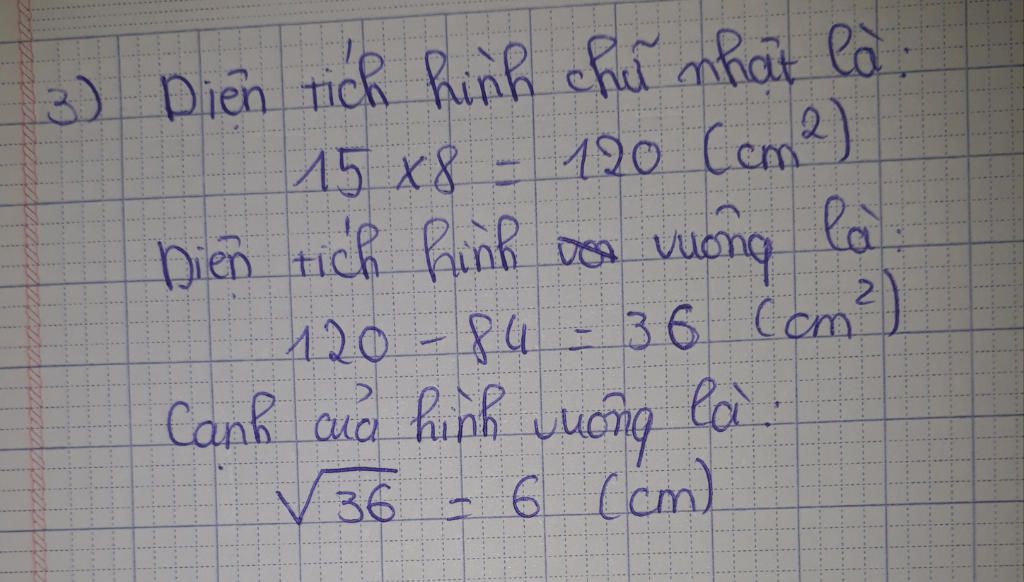 3) Diện tích hình chữ nhật là:
15 x 8 = 120 (cm²)
Diện tích hình vuông là:
120 - 84 = 36 (cm²)
Cạnh của hình vuông là:
√36 = 6 (cm)